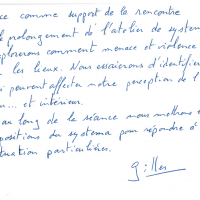 ce comme support de la rencontre
prolongement de l'atelier de system
plorerons comment menace et violence
les lieux. Nous essaierons d'identifier
i peuvent affecter notre perception de l'
... et intérieur.
au long de la séance nous mettrons
positions du systema pour répondre à
particulières.
Gilles